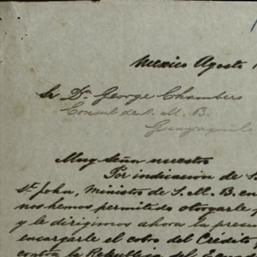 Mexico Agosto 1
Sr Dn George Chambers
Consul de S. M. B.
Guayaquil
Muy Señor nuestro
Por indicacion de S
St. John, Ministro de S. M. B. en
nos hemos permitido otorgarle p
y le dirigimos ahora la presen
encargarle el cobro del Crédito
contra la Republica del Ecuad